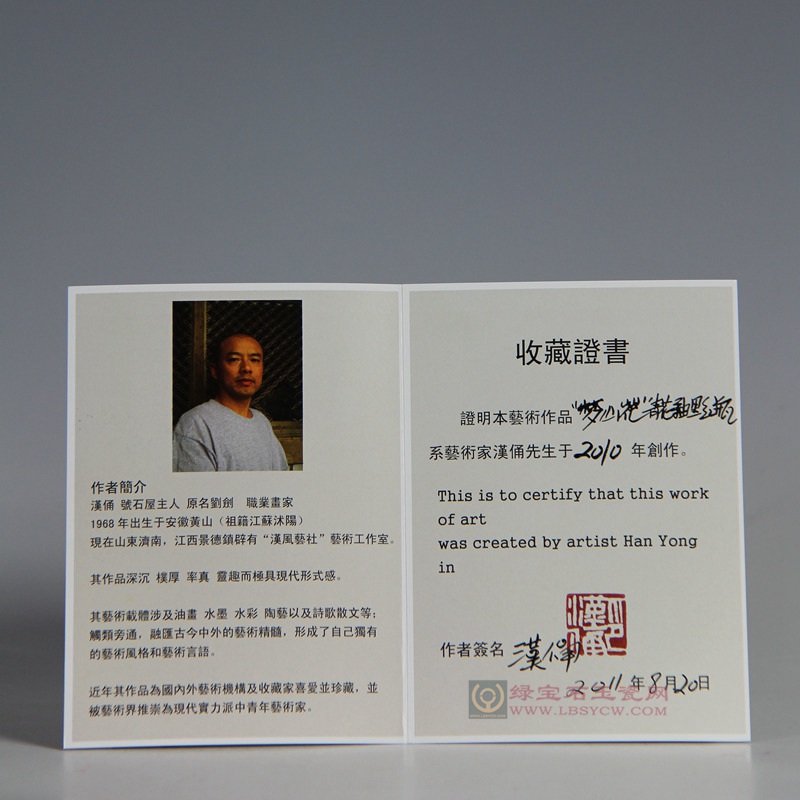 作者簡介
漢俑 號石屋主人 原名劉劍 職業畫家
1968年出生于安徽黃山（祖籍江蘇沭陽）
現在山東濟南，江西景德鎮辟有“漢風藝社”藝術工作室。
其作品深沉 樸厚 率真 靈趣而極具現代形式感。
其藝術載體涉及油畫 水墨 水彩 陶藝以及詩歌散文等；
觸類旁通，融匯古今中外的藝術精髓，形成了自己獨有
的藝術風格和藝術言語。
近年其作品為國內外藝術機構及收藏家喜愛並珍藏，並
被藝術界推崇為現代實力派中青年藝術家。
收藏證書
證明本藝術作品“夢山花”
系藝術家漢俑先生于2010年創作。
This is to certify that this work
of art
was created by artist Han Yong
in
作者簽名 漢俑
2011年8月20日
绿宝名玉瓷网
WWW.LBSYCW.COM